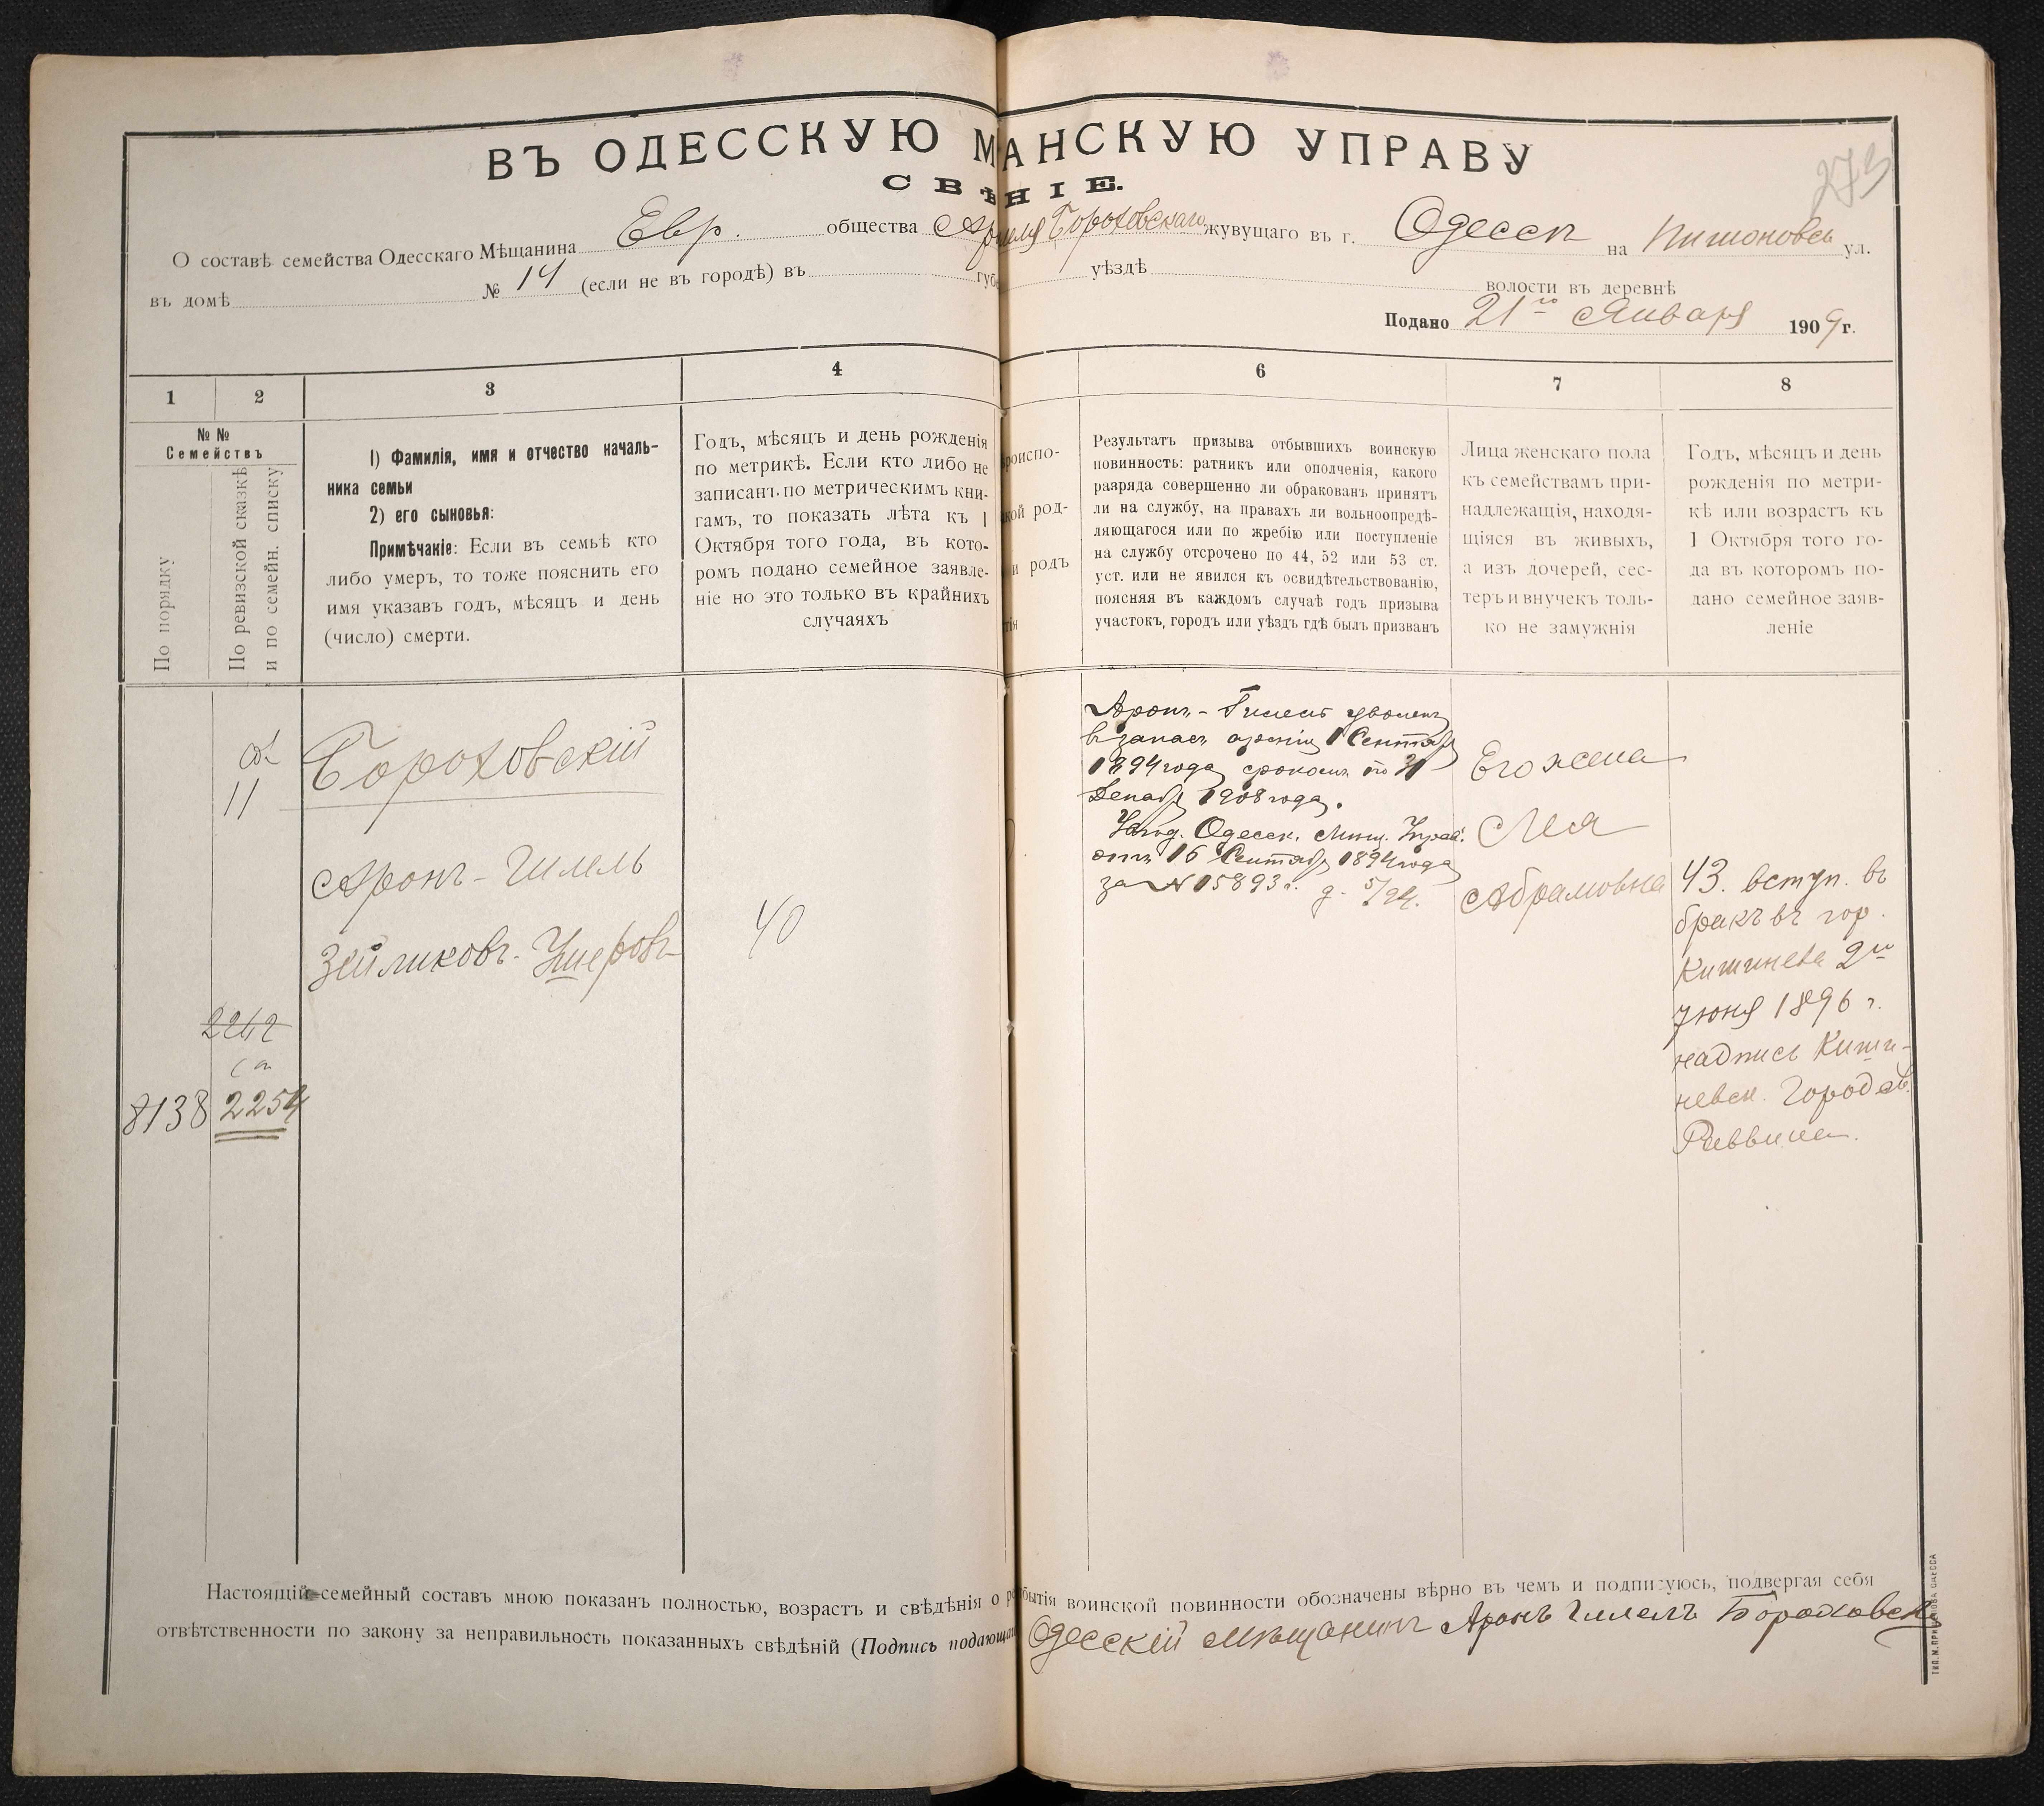 273
ВЪ ОДЕССКУЮ М АНСКУЮ УПРАВУ
СВѢ НІЕ.
О составѣ семейства Одесскаго Мѣщанина Евр. общества Борохов­скаго жувущаго въ г. Одессѣ на ул.
въ домѣ № 14 (если не въ городѣ) въ губе уѣздѣ волости въ деревнѣ
Подано 21го Января 1909 г.
1 2 3 4 6 7 8
№ №
Семействъ
По порядку
По ревизской сказкѣ
и по семейн. списку
1) Фамилія, имя и отчество началь-
ника семьи
2) его сыновья:
Примѣчакіе: Если въ семьѣ кто
либо умеръ, то тоже пояснить его
имя указавъ годъ, мѣсяцъ и день
(число) смерти.
Годъ, мѣсяцъ и день рожденія
по метрикѣ. Если кто либо не
записанъ по метрическимъ кни-
гамъ, то показать лѣта къ 1
Октября того года, въ кото-
ромъ подано семейное заявле-
ніе но это только въ крайнихъ
случаяхъ
роиспо-
кой род-
и родъ
тія
Результатъ призыва отбывшихъ воинскую
повинность: ратникъ или ополченія, какого
разряда совершенно ли обракованъ принятъ
ли на службу, на правахъ ли вольноопредѣ-
ляющагося или по жребію или поступленіе
на службу отсрочено по 44, 52 или 53 ст.
уст. или не явился къ освидѣтельствованію,
поясняя въ каждомъ случаѣ годъ призыва
участокъ, городъ или уѣздъ гдѣ былъ призванъ
Лица женскаго пола
къ семействамъ при-
надлежащія, находя-
щіяся въ живыхъ,
а изъ дочерей, сес-
теръ и внучекъ толь-
ко не замужнія
Годъ, мѣсяцъ и день
рожденія по метри-
кѣ или возрастъ къ
1 Октября того го-
да въ которомъ по-
дано семейное заяв-
леніе
11
Бороховскій
Аронъ-Гилель
Зейликовъ-Ушеровъ
40
2242
8138 2254
Аронъ-Гилель уволенъ
въ запасъ арміи 1 Сентября
1894 года срокомъ по 31
Декабря 1908 года.
Одесск. Мѣщ. Управ.
отъ 16 Сентября 1894 года
за № 15893.
Его жена
Лея
Абрамовна
43. вступ. въ
бракъ въ гор.
Кишиневе 2го
Іюня 1896 г.
надпись Киши-
невск. Городск.
Раввина.
Настоящій семейный составъ мною показанъ полностью, возрастъ и свѣдѣнія о бытія воинской повинности обозначены вѣрно въ чемъ и подписуюсь, подвергая себя
отвѣтственности по закону за неправильность показанныхъ свѣдѣній (Подпись подающа Одесскій Мѣщанинъ Аронъ Гилелъ Бороховск